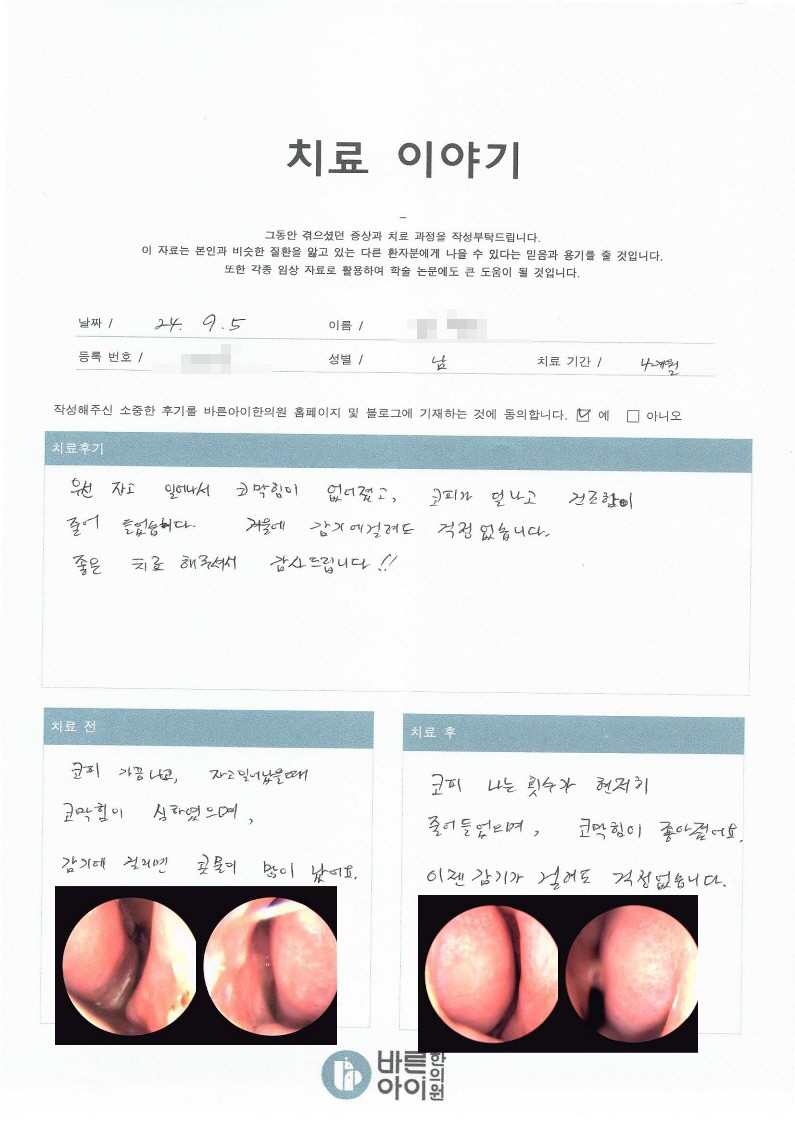 치료 이야기
그동안 겪으셨던 증상과 치료 과정을 작성부탁드립니다.
이 자료는 본인과 비슷한 질환을 앓고 있는 다른 환자분에게 나을 수 있다는 믿음과 용기를 줄 것입니다.
또한 각종 임상 자료로 활용하여 학술 논문에도 큰 도움이 될 것입니다.
날짜 / 24. 9. 5 이름 /
등록 번호 / 성별 / 남 치료 기간 / 4개월
작성해주신 소중한 후기를 바른아이한의원 홈페이지 및 블로그에 기재하는 것에 동의합니다. ☑ 예 ☐ 아니오
치료후기
우선 자고 일어나서 코막힘이 없어졌고, 코피가 덜나고 건조함이
줄어 들었습니다. 겨울에 감기에걸려도 걱정없습니다.
좋은 치료 해주셔서 감사드립니다!!
치료 전
코피 가끔나고, 자고일어났을때
코막힘이 심하였으며,
감기에 걸리면 콧물이 많이 났어요.
치료 후
코피 나는 횟수가 현저히
줄어들었으며, 코막힘이 좋아졌어요.
이젠 감기가 걸려도 걱정없습니다.
바른아이한의원